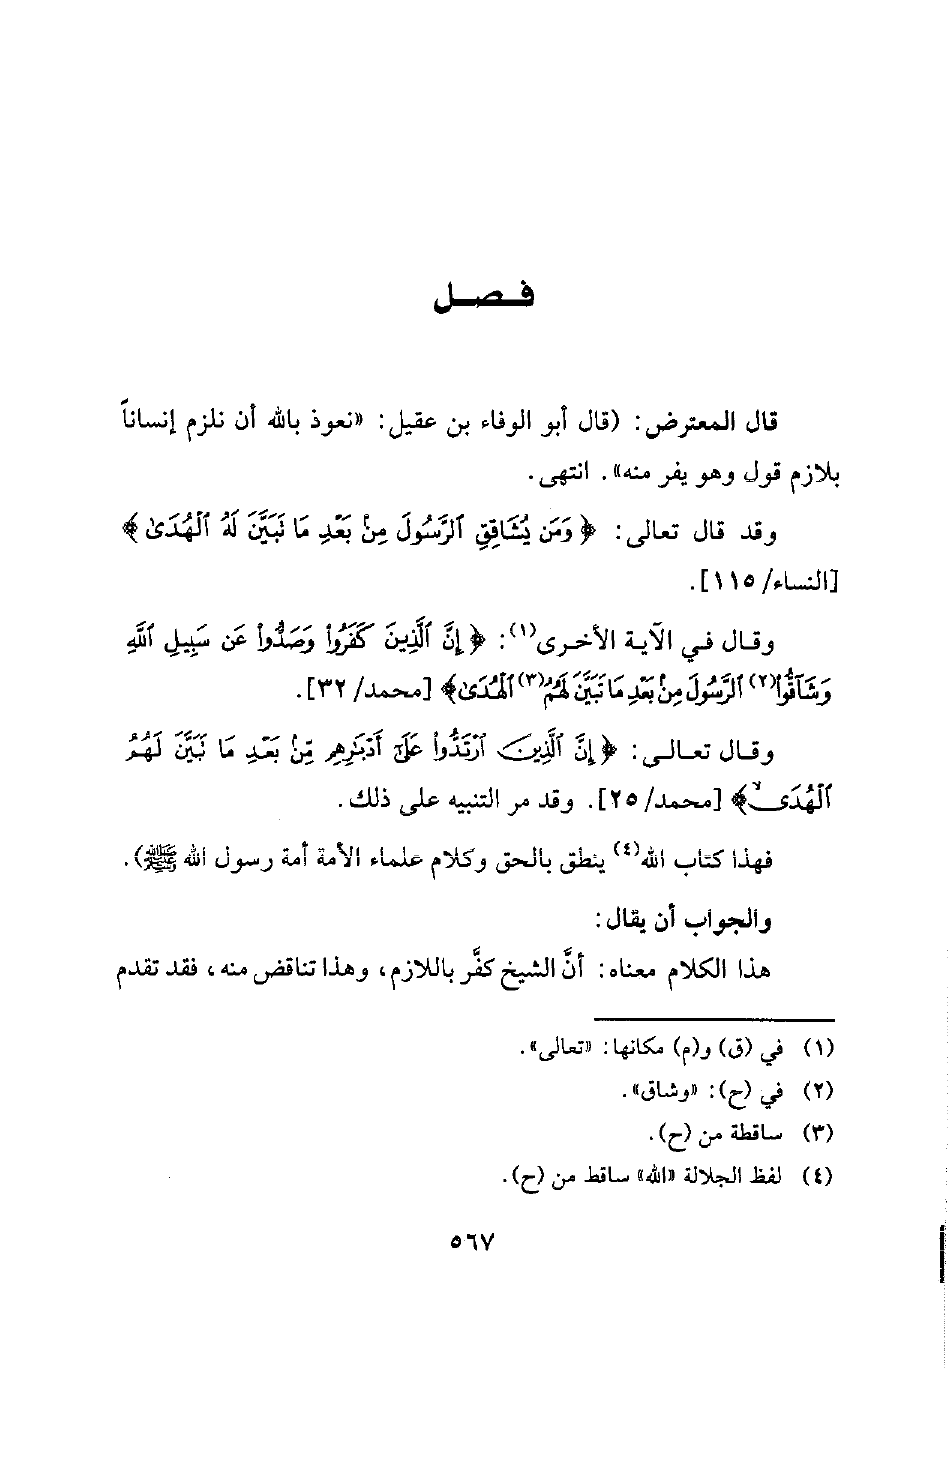 فـصـل
قال المعترض: (قال أبو الوفاء بن عقيل: «نعوذ بالله أن نلزم إنساناً
بلازم قول وهو يفر منه». انتهى.
وقد قال تعالى: ﴿وَمَن يُشَاقِقِ ٱلرَّسُولَ مِنۢ بَعْدِ مَا تَبَيَّنَ لَهُ ٱلْهُدَىٰ﴾
[النساء/ ١١٥].
وقال في الآية الأخرى(١): ﴿إِنَّ ٱلَّذِينَ كَفَرُوا۟ وَصَدُّوا۟ عَن سَبِيلِ ٱللَّهِ
وَشَآقُّوا۟(٢) ٱلرَّسُولَ مِنۢ بَعْدِ مَا تَبَيَّنَ لَهُمُ(٣) ٱلْهُدَىٰ﴾ [محمد/ ٣٢].
وقال تعالى: ﴿إِنَّ ٱلَّذِينَ ٱرْتَدُّوا۟ عَلَىٰٓ أَدْبَٰرِهِم مِّنۢ بَعْدِ مَا تَبَيَّنَ لَهُمُ
ٱلْهُدَى ۙ﴾ [محمد/ ٢٥]. وقد مر التنبيه على ذلك.
فهذا كتاب الله(٤) ينطق بالحق وكلام علماء الأمة أمة رسول الله ﷺ).
والجواب أن يقال:
هذا الكلام معناه: أنَّ الشيخ كفَّر باللازم، وهذا تناقض منه، فقد تقدم
(١) في (ق) و(م) مكانها: «تعالى».
(٢) في (ح): «وشاق».
(٣) ساقطة من (ح).
(٤) لفظ الجلالة «الله» ساقط من (ح).
٥٦٧